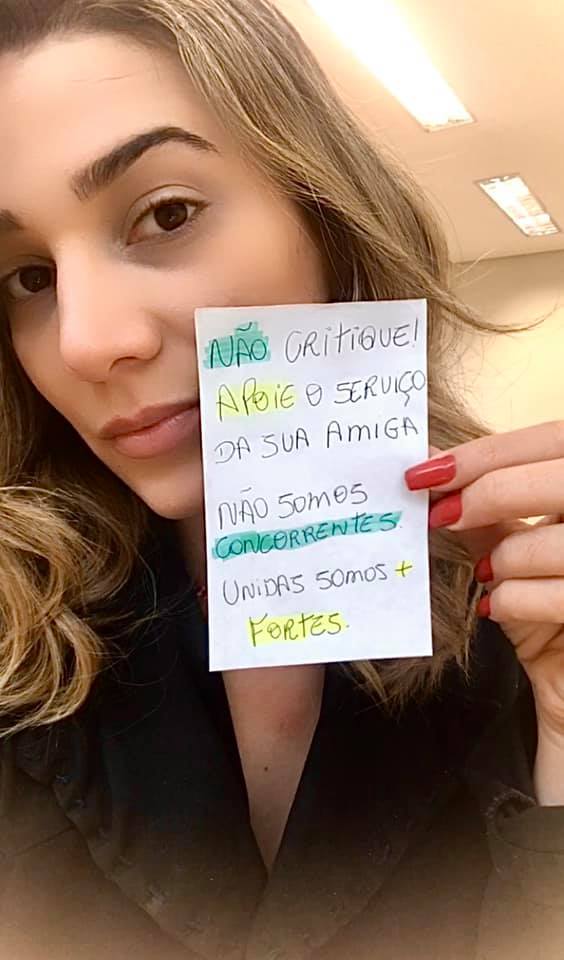 NÃO CRITIQUE!
APOIE O SERVIÇO
DA SUA AMIGA
NÃO SOMOS
CONCORRENTES.
UNIDAS SOMOS +
FORTES.